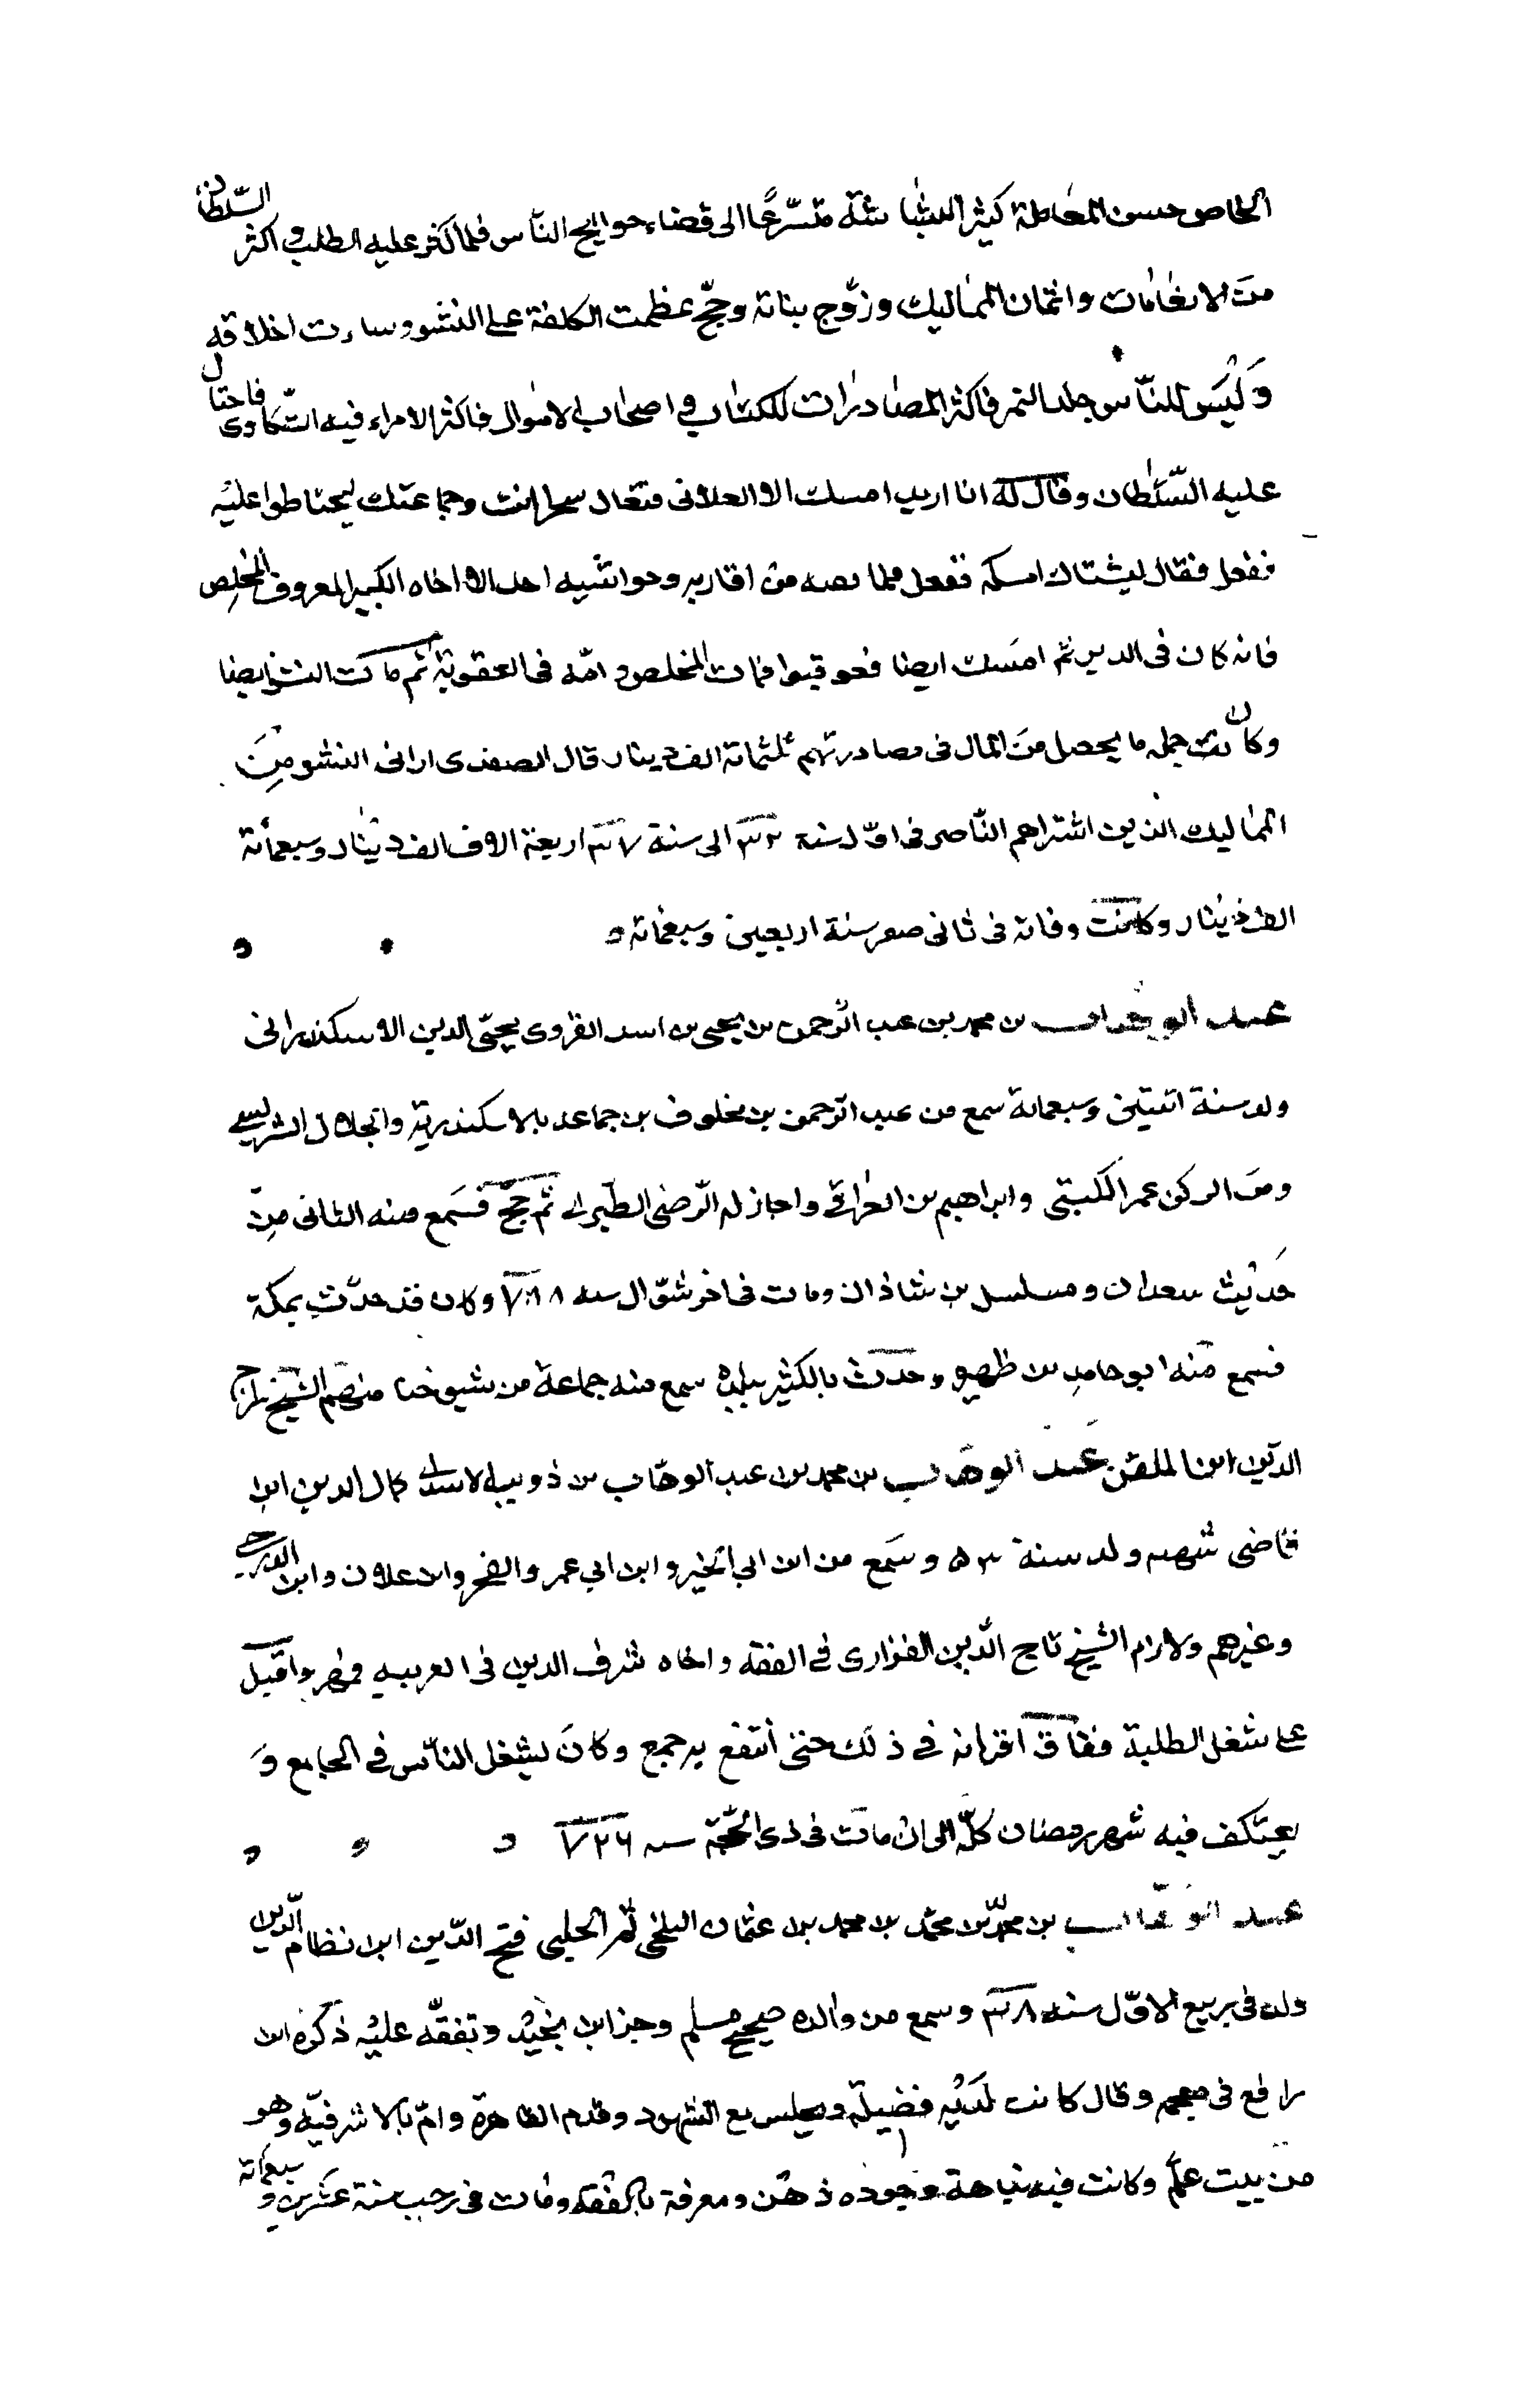 الخاص حسن المعاملة كثير البشاشة متسرّعًا الى قضاء حوايج النّاس فلما كثر عليه الطلب واكثر السّلطان
من الانعامات واثمان المماليك وزوّج بناته وحجّ عظمت الكلفة على النشو وساءت اخلاقه
وَلَبِسَ للنّاس جلد النمر فاكثر المصادرات للكتاب واصحاب الاموال فاكثر الامراء فيه الشّكاوى فاحتال
عليه السّلطان وقال له انا اريد امسك الاو العلانى فتعال سحرا انت وجماعتك ليحتاطوا عليه
ففعل فقال لبشتاك امسكه ففعل فما من اقاربه وحواشيه احد الا اخاه الكبير المعروف المخلص
فانه كان فى الدير ثم امسك ايضا فعوقبوا فمات المخلص وامّه فى العقوبة ثم مات النشو ايضا
وكان جملة ما يحصل من المال فى مصادرتهم ثلثمائة الف دينار قال الصفدى ارانى النشو مِن
المماليك الذين اشتراهم النّاصر فى اوّل سنة ٣٢ الى سنة ٣٧ اربعة الاف الف دينار وسبعمائة
الف دينار وكانت وفاته فى ثانى صفر سنة اربعين وسبعمائة
عبد الوهاب بن محمد بن عبد الرّحمن بن يحيى بن اسد القروى يحيّى الدين الاسكندرانى
ولد سنة اثنتين وسبعمائة سمع من عبد الرّحمن بن مخلوف بن جماعه بالاسكندرية والجلال
ومن الركن عمر الكبتى وابراهيم بن العراقي واجاز له الرّضى الطّبرى ثم حجّ فسَمع منه الثانى مِن
حَديث سعدان ومسلسل بن شاذان ومات فى اخر شوّال سنه ٧٨٨ وكان قد حدّث بمكة
فسمع منه ابو حامد بن ظهيره وحدث بالكثير ببلده سمع منه جماعة من شيوخنا منهم الشيخ سراج
الدّين ابن الملقن عبد الوهاب بن محمد بن عبد الوهّاب بن ذويب الاسدى كمال الدين ابن
قاضى شهبه ولد سنة ٥٣ وسَمع من ابن ابي الخير وابن ابي عمر والفخر وابن علان وابن الدرجى
وغيرهم ولازم الشيخ تاج الدّين الفزارى في الفقه واخاه شرف الدين فى العربيه فمهر واقبل
على شغل الطلبة ففاق اقرانه في ذلك حتى أنتفع به جمع وكان يشغل النّاس في الجامع وَ
يعتكف فيه شهر رمضان كلّه الى ان مات فى ذى الحجّة سنه ٧٢٦
عبد الوهاب بن محمّد بن محمّد بن محمد بن عثمان البلخى ثم الحلبى فتح الدّين ابن نظام الدّين
ولد فى ربيع الاوّل سنه ٣٨ وسمع من والده صحيح مسلم وجزء ابن نجيد وتفقّه عليه ذكره ابن
رافع فى معجمه وقال كانت لَدَيْهِ فضيلة ويجلس مع الشهود وقدم القاهرة وامّ بالاشرفيّه وهو
من بيت علم وكانت فيه نباهة وجوده ذهن ومعرفة بالفقه ومات فى رجب سنة عشرين وسبعمائة